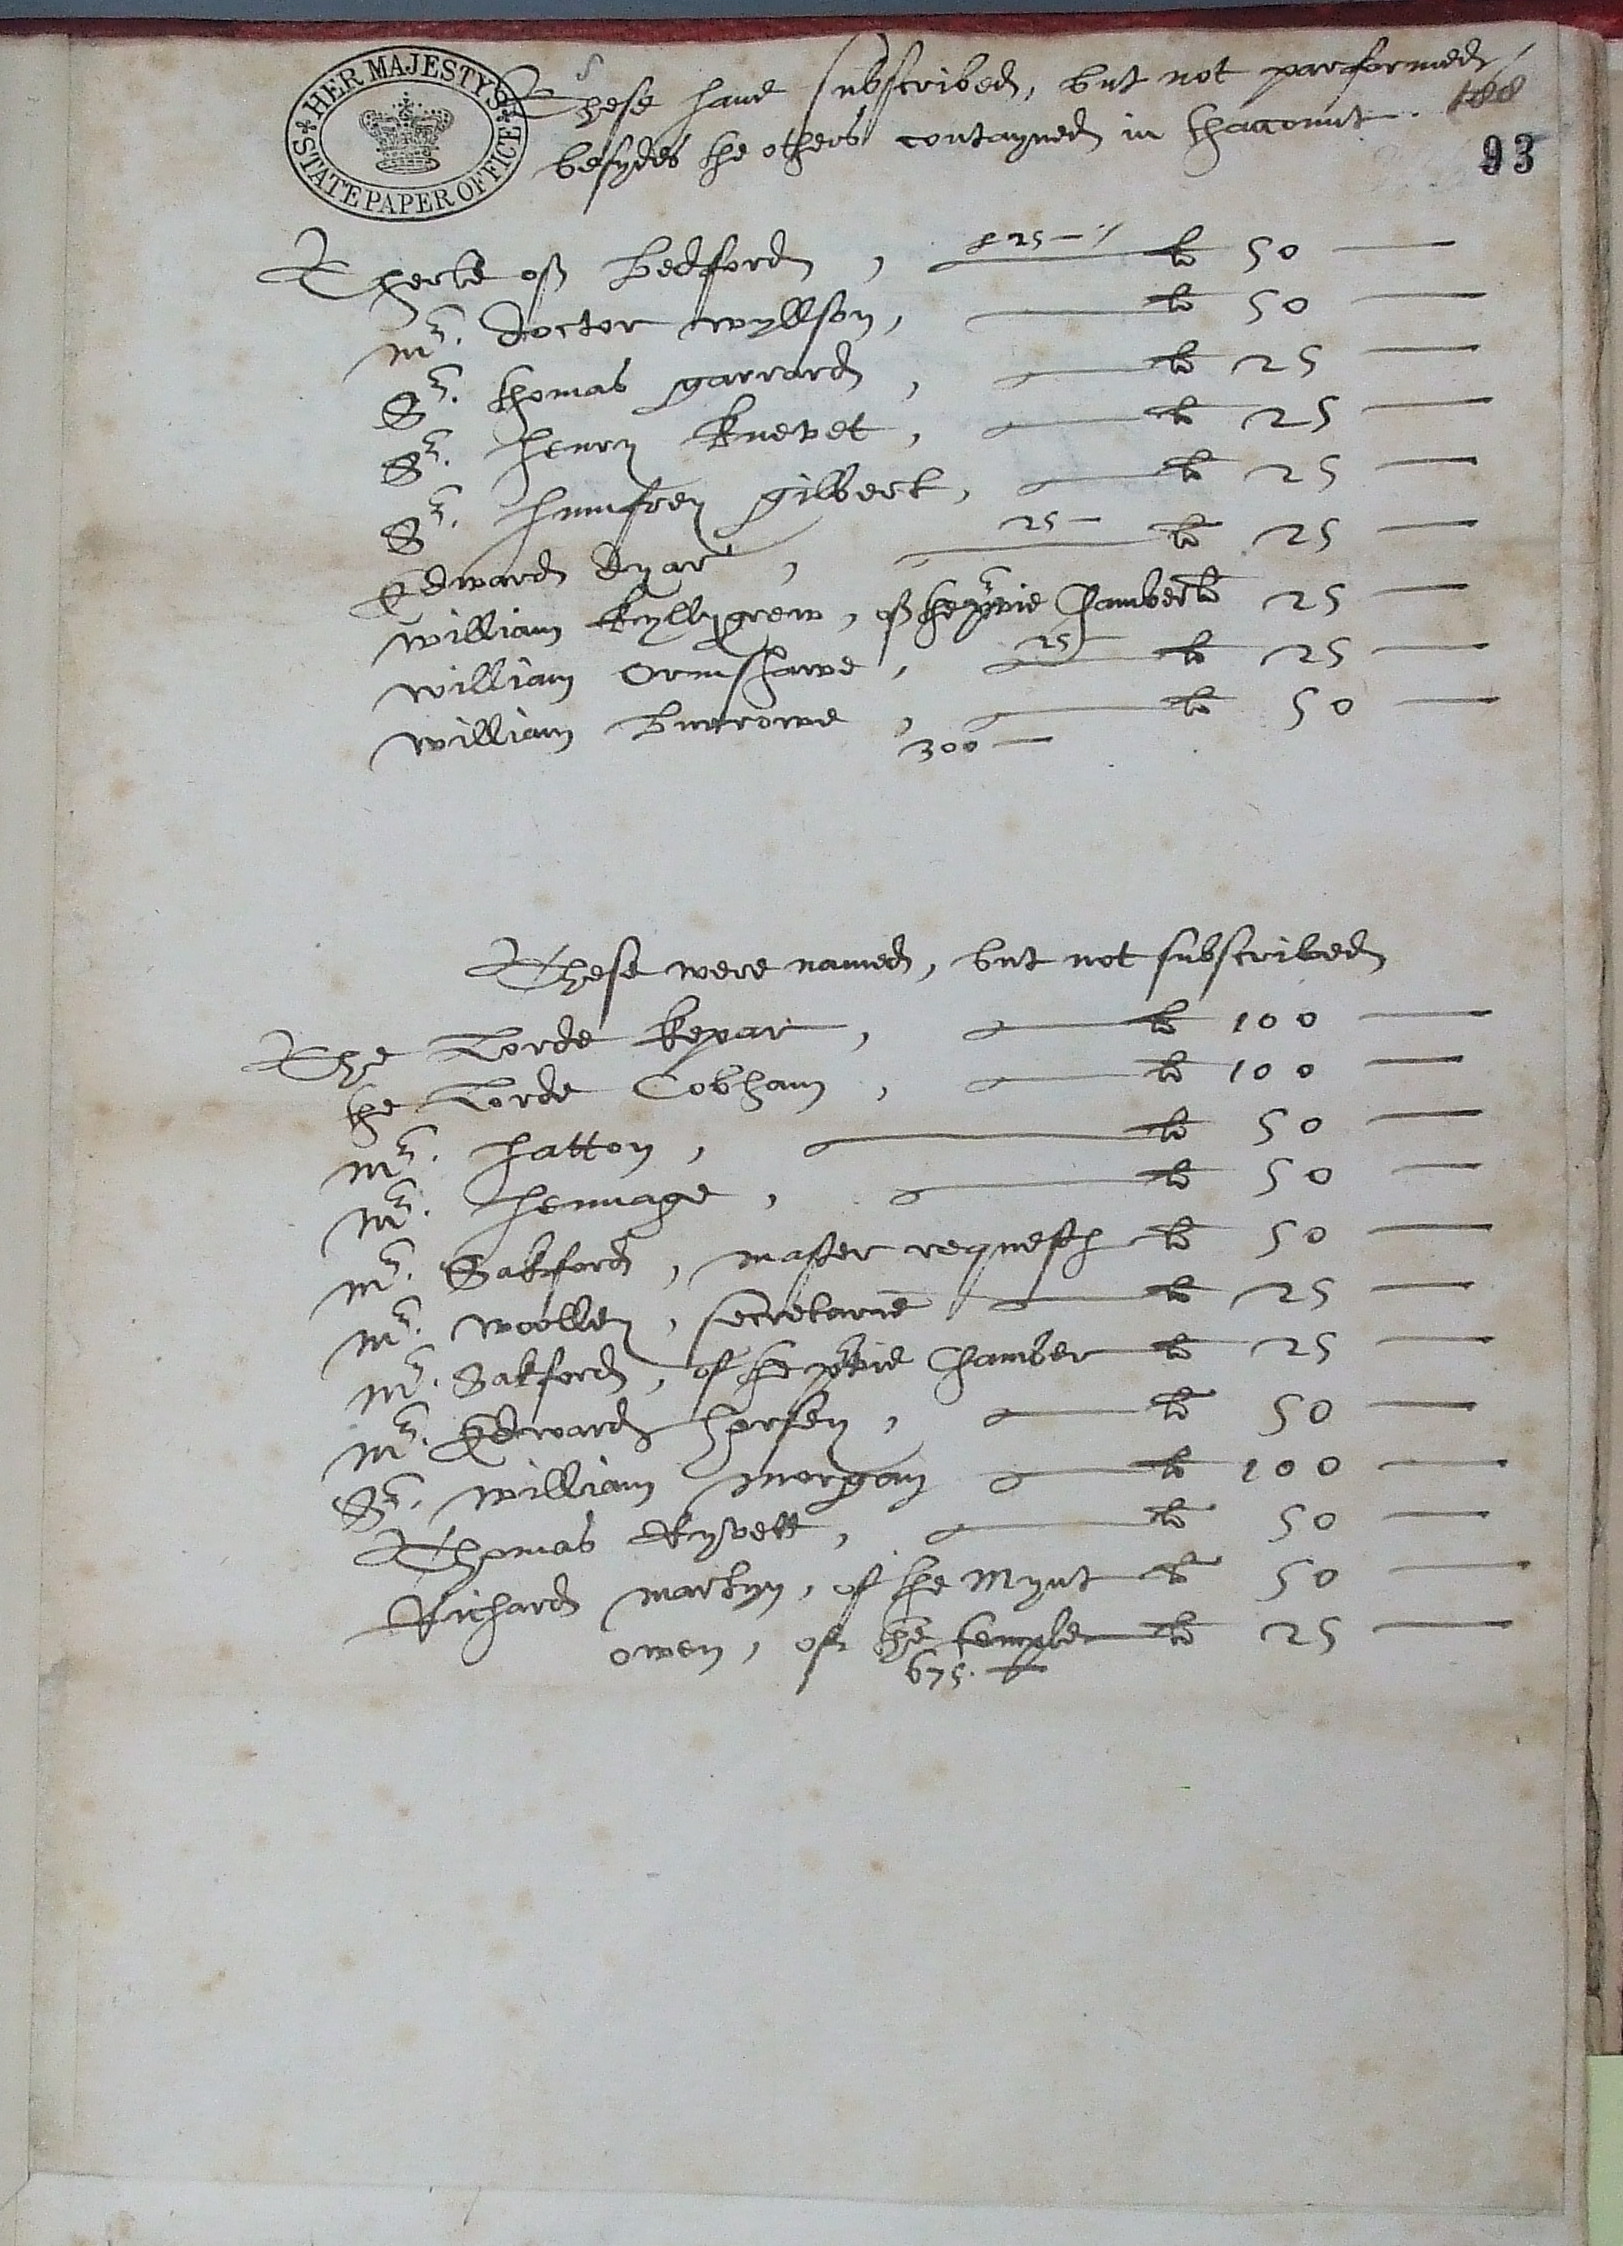 HER MAJESTYS
STATE PAPER OFFICE
These have subscribed, but not parformed
besydes the others contayned in thaccount.
93
Therle off Bedford, £ 25 — li 50
mr. doctor wyllson, li 50
Sr. thomas garrard, li 25
Sr. henry knevet, li 25
Sr. humfrey gilbert, li 25
Edward dyar, 25 — li 25
william kyllygrew, off the privie Chamber li 25
william Ormshawe, 25 li 25
william Burrowe, li 50
300 —
These were named, but not subscribed
The Lorde kepar, li 100
the Lorde Cobham, li 100
mr. hatton, li 50
mr. hennage, li 50
mr. Sakford, master requests li 50
mr. woolley, secretarie li 25
mr. Sakford, of the privie Chamber li 25
mr. Edward horsey, li 50
Sr. william morgan li 100
Thomas knyvett, li 50
Richard martyn, of the Mynt li 50
owen, off the temple li 25
675.